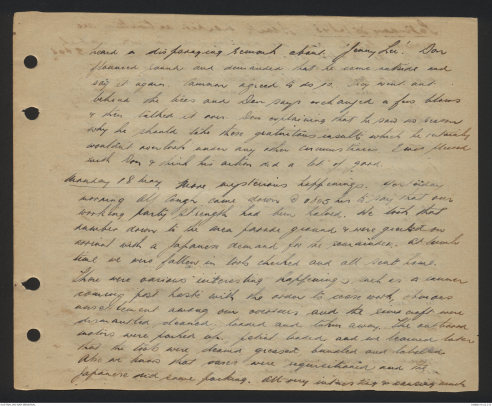 heard a disparaging remark about 'Jenny Lee'. Don
flounced round and demanded that he come outside and
say it again. agreed to do so. They went out
behind the trees and Don says exchanged a few blows
& then talked it over. Don explaining that he saw no reason
why he should take these gratuitous insults which he
wouldn't overlook under any other circumstances. I was pleased
with Don & think his action did a lot of good.
Monday 18 May. More mysterious happenings.
morning came down @ 0805 hrs to say that our
working party strength had been halved. We took that
number down to the area parade ground & were greeted on
arrival with a Japanese demand for the remainder. At
time we were fallen in tools checked and all sent home.
There were various interesting happenings, such as a runner
coming post haste with the order to cease work,
amusement among our overseers and the
dismantled cleaned loaded and taken away. The outboard
motors were packed up, petrol loaded and we learned later
that the tools were cleaned greased bundled and labelled.
Also we know that were requisitioned and the
Japanese did some packing. All very interesting &